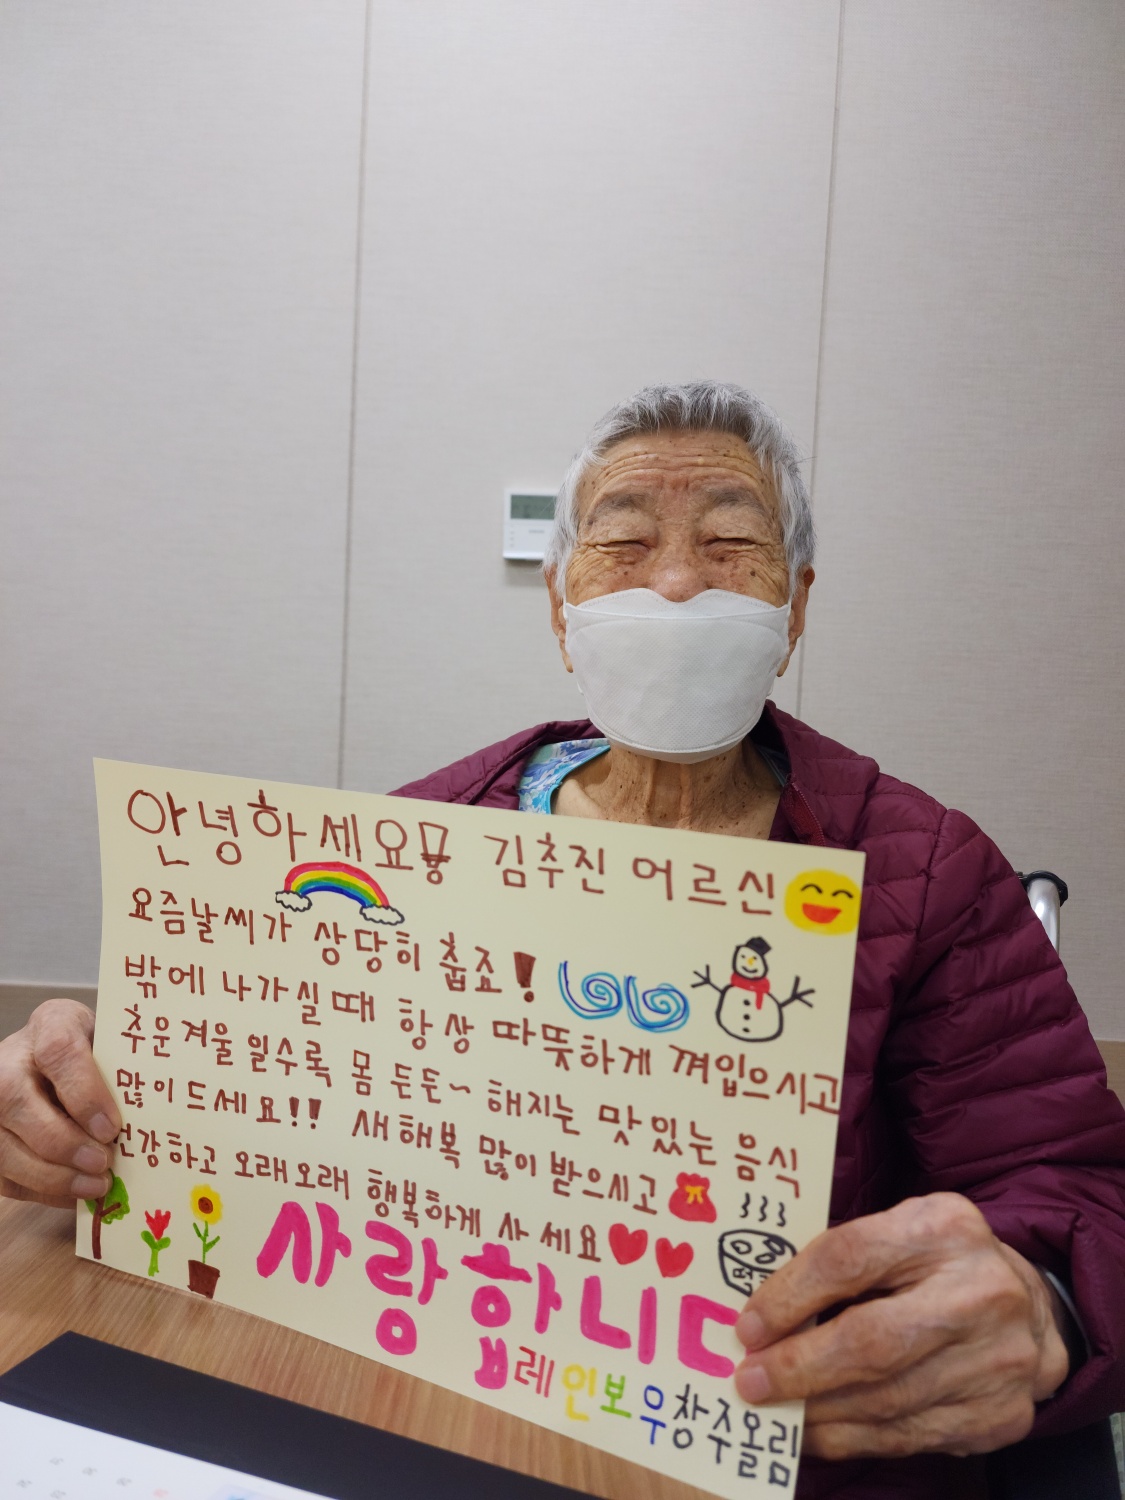 안녕하세요!! 김추진 어르신
요즘날씨가 상당히 춥죠!
밖에 나가실때 항상 따뜻하게 껴입으시고
추운겨울일수록 몸 든든~ 해지는 맛있는 음식
많이드세요!! 새해복 많이 받으시고
건강하고 오래오래 행복하게 사세요
사랑합니다
레인보우창주올림